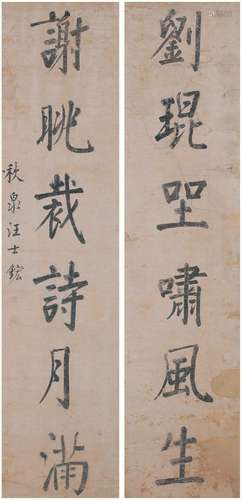 劉琨坐嘯風生
謝眺裁詩月滿
秋泉汪士鋐